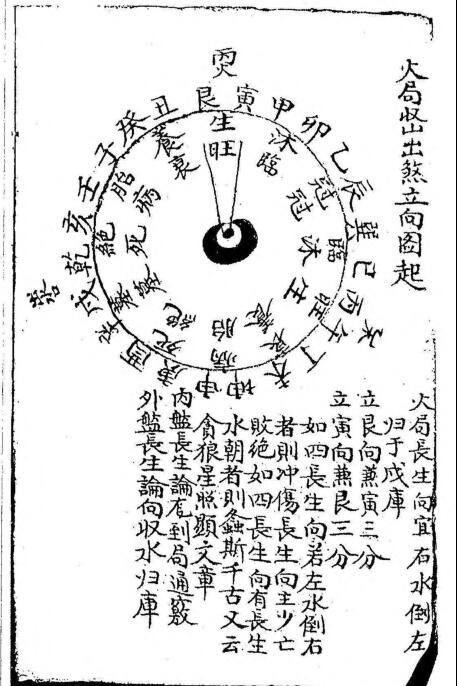 火局收山出煞立向图起
艮寅甲卯乙辰巽巳丙午丁未坤申庚酉辛戌乾亥壬子癸丑
生沐冠臨旺衰病死墓絶胎養
旺臨冠沐生養胎絶墓死病衰
火局長生向宜右水倒左
归于戌庫
立艮向兼寅三分
立寅向兼艮三分
如四長生向若左水倒右
者則冲傷長生向主少亡
敗绝如四長生向有長生
水朝者則螽斯千古又云
貪狼星照顯文章
内盤長生論龙到局通竅
外盤長生論向収水归庫